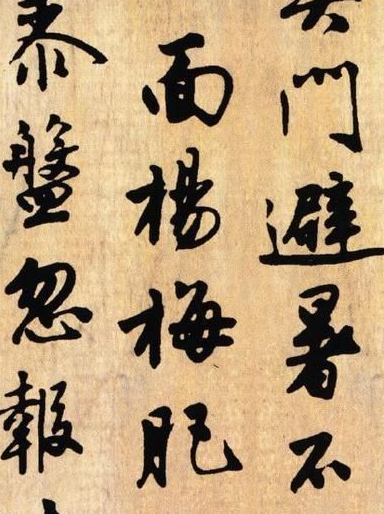 吳門避暑不
面楊梅肥
盤忽報